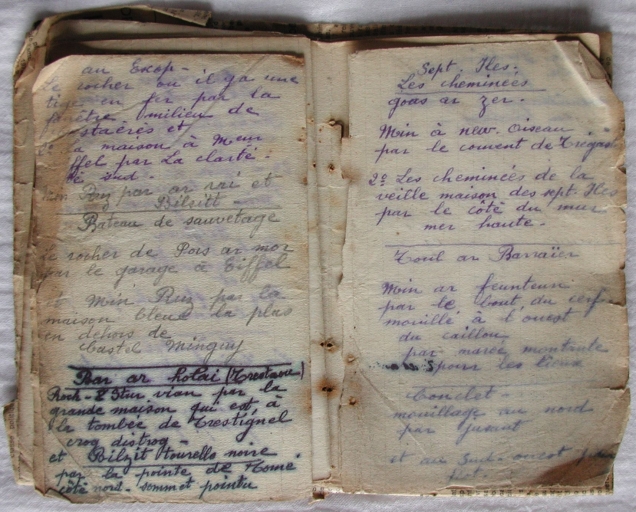 au Exop-
le rocher ou il y a une
tige en fer par la
fenêtre milieu de
staérès et
la maison à Meur
ffel par La clarté.
Sud.
Ruz par ar rai et
Bilsitt-
Bateau de sauvetage
Le rocher de Pors ar mor
par le garage à Eiffel
et Min Ruz par la
maison bleue la plus
en dehors de
Castel Minguy
Bar ar holai (Trestraou)
Roch-2 Stur vian par la
grande maison qui est à
le tombée de Trestignel
croq distroq-
et Bilzit tourelle noire
par la pointe de Tomé.
côté nord-sommet pointu
Sept. Iles.
Les cheminées
goas ar zer.
Min à new. oiseau
par le couvent de
2º Les cheminées de la
veille maison des sept Iles
par le côté du mur
mer haute.
Toul ar Barraïer
Min ar feunteun
par le bout du cerf
mouillé à l'ouest
du caillou
par marée montante
pour les lieux
Conclet-
mouillage au nord
par jusant
et au Sud-ouest
flot.